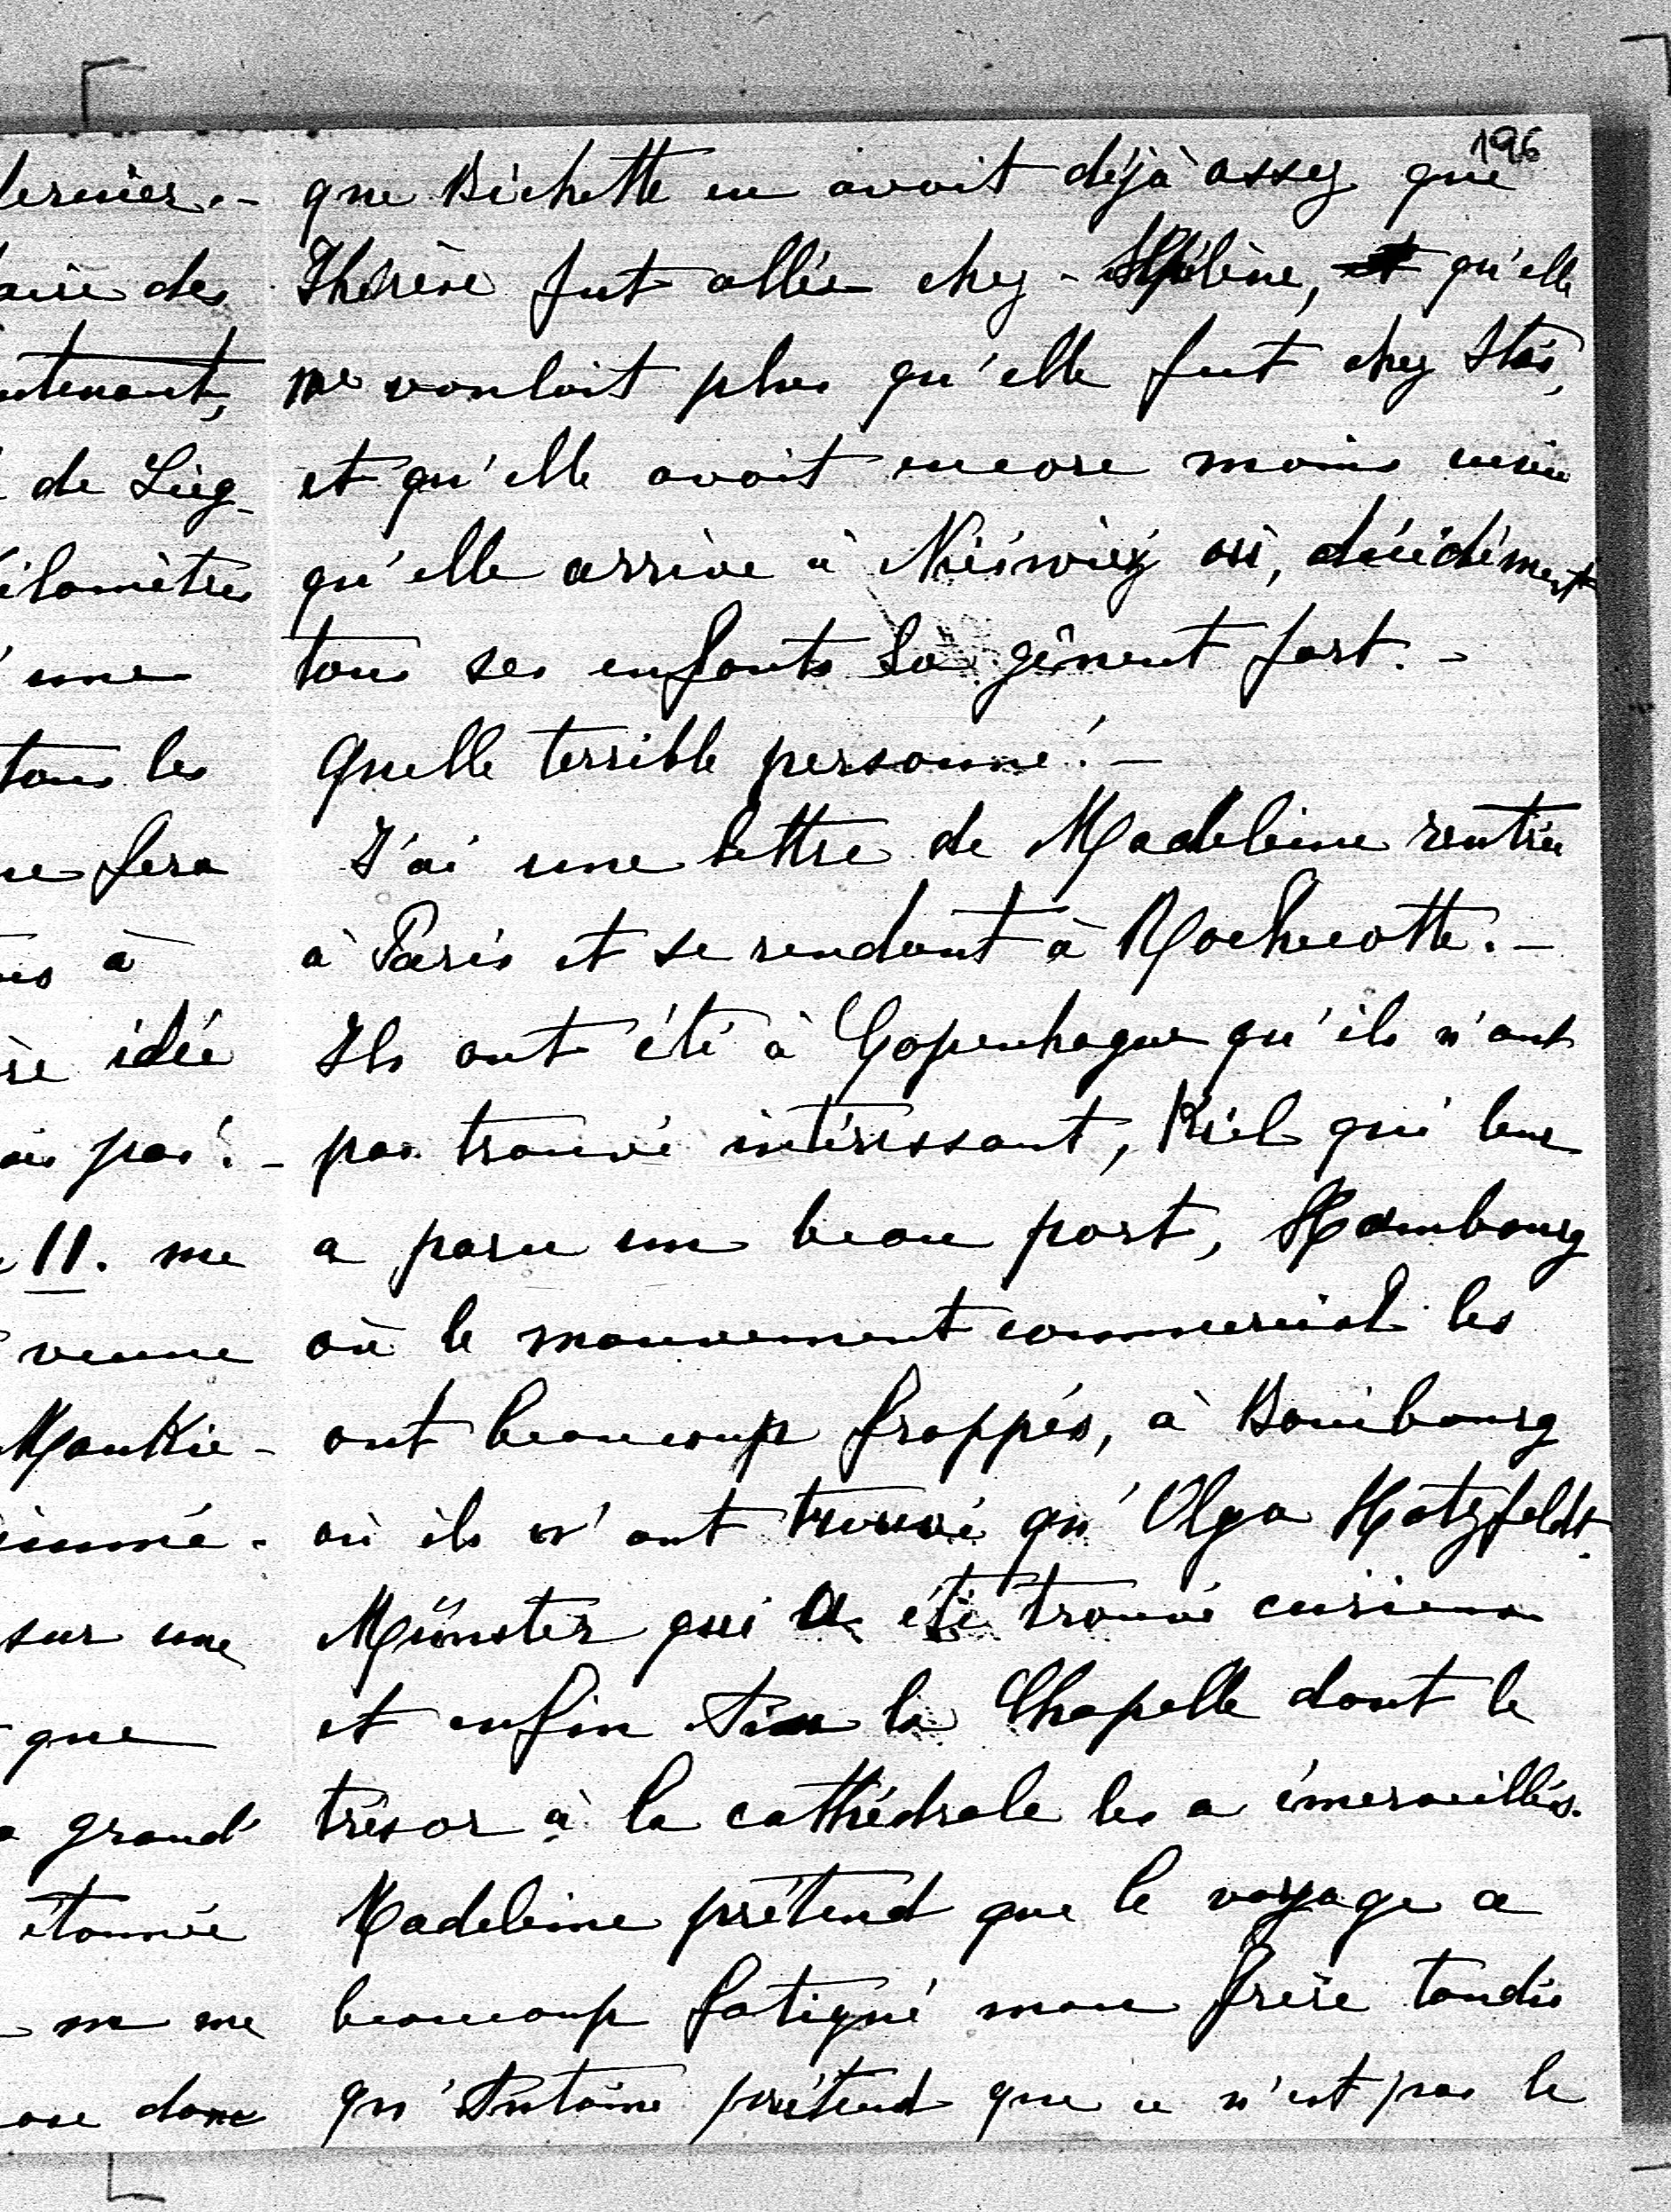 196
que Bichette en avait déjà assez que
Thérèse fut allée chez - Hélène, qu'elle
ne voulait plus qu'elle fut chez Stas,
et qu'elle avait encore moins envie
qu'elle arrive à Nieswiez où, décidément
tous ses enfants la gênent fort. -
Quelle terrible personne! -
J'ai une lettre de Madeleine rentrée
à Paris et se rendant à Rochecotte. -
Ils ont été à Copenhague qu'ils n'ont
pas trouvé intéressant, Kiel qui leur
a paru un beau port, Hambourg
où le mouvement commercial les
ont beaucoup frappés, à
où ils n'ont trouvé qu'Olga Hatzfeldt.
Münster qui a été trouvé curieux
et enfin Aix la Chapelle dont le
trésor à la cathédrale les a émerveillés.
Madeleine prétend que le voyage a
beaucoup fatigué mon frère tandis
qu'Antoine prétend que ce n'est pas le
de Lieg-
ilomètres
une
tous les
fera
à
idée
pas! -
11. me
venue
sur une
que
grand'
étonnée
me
donc